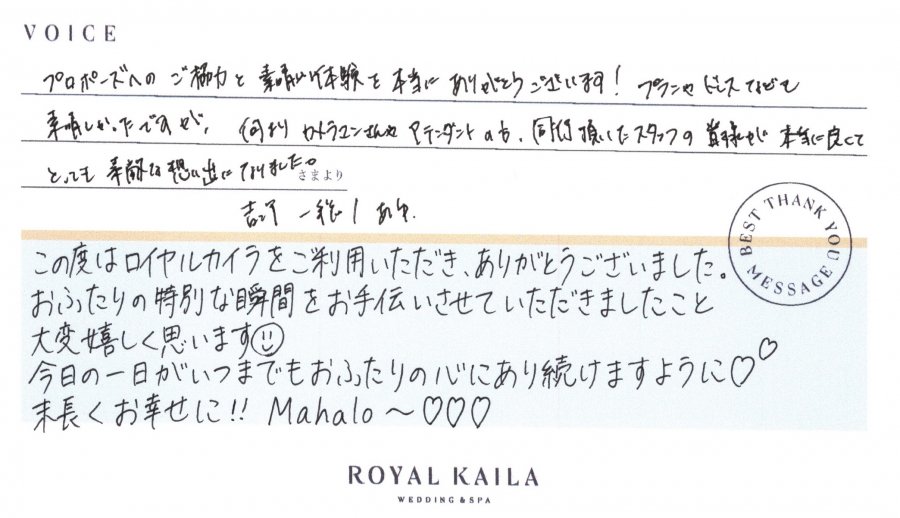 VOICE
プロポーズへの ご協力と 素晴しい体験を 本当に ありがとうございます! プランや ドレスなども
素晴しかったですが、 何より カメラマンさんや アテンダントの方、同行頂いたスタッフの 皆様が 本当に良くて
とっても 素敵な 想い出になりました。
さまより
BEST THANK YOU MESSAGE
この度はロイヤルカイラをご利用いただき、ありがとうございました。
おふたりの特別な瞬間をお手伝いさせていただきましたこと
大変嬉しく思います
今日の一日がいつまでもおふたりの心にあり続けますように♡♡
末長くお幸せに!! Mahalo〜♡♡♡
ROYAL KAILA
WEDDING & SPA